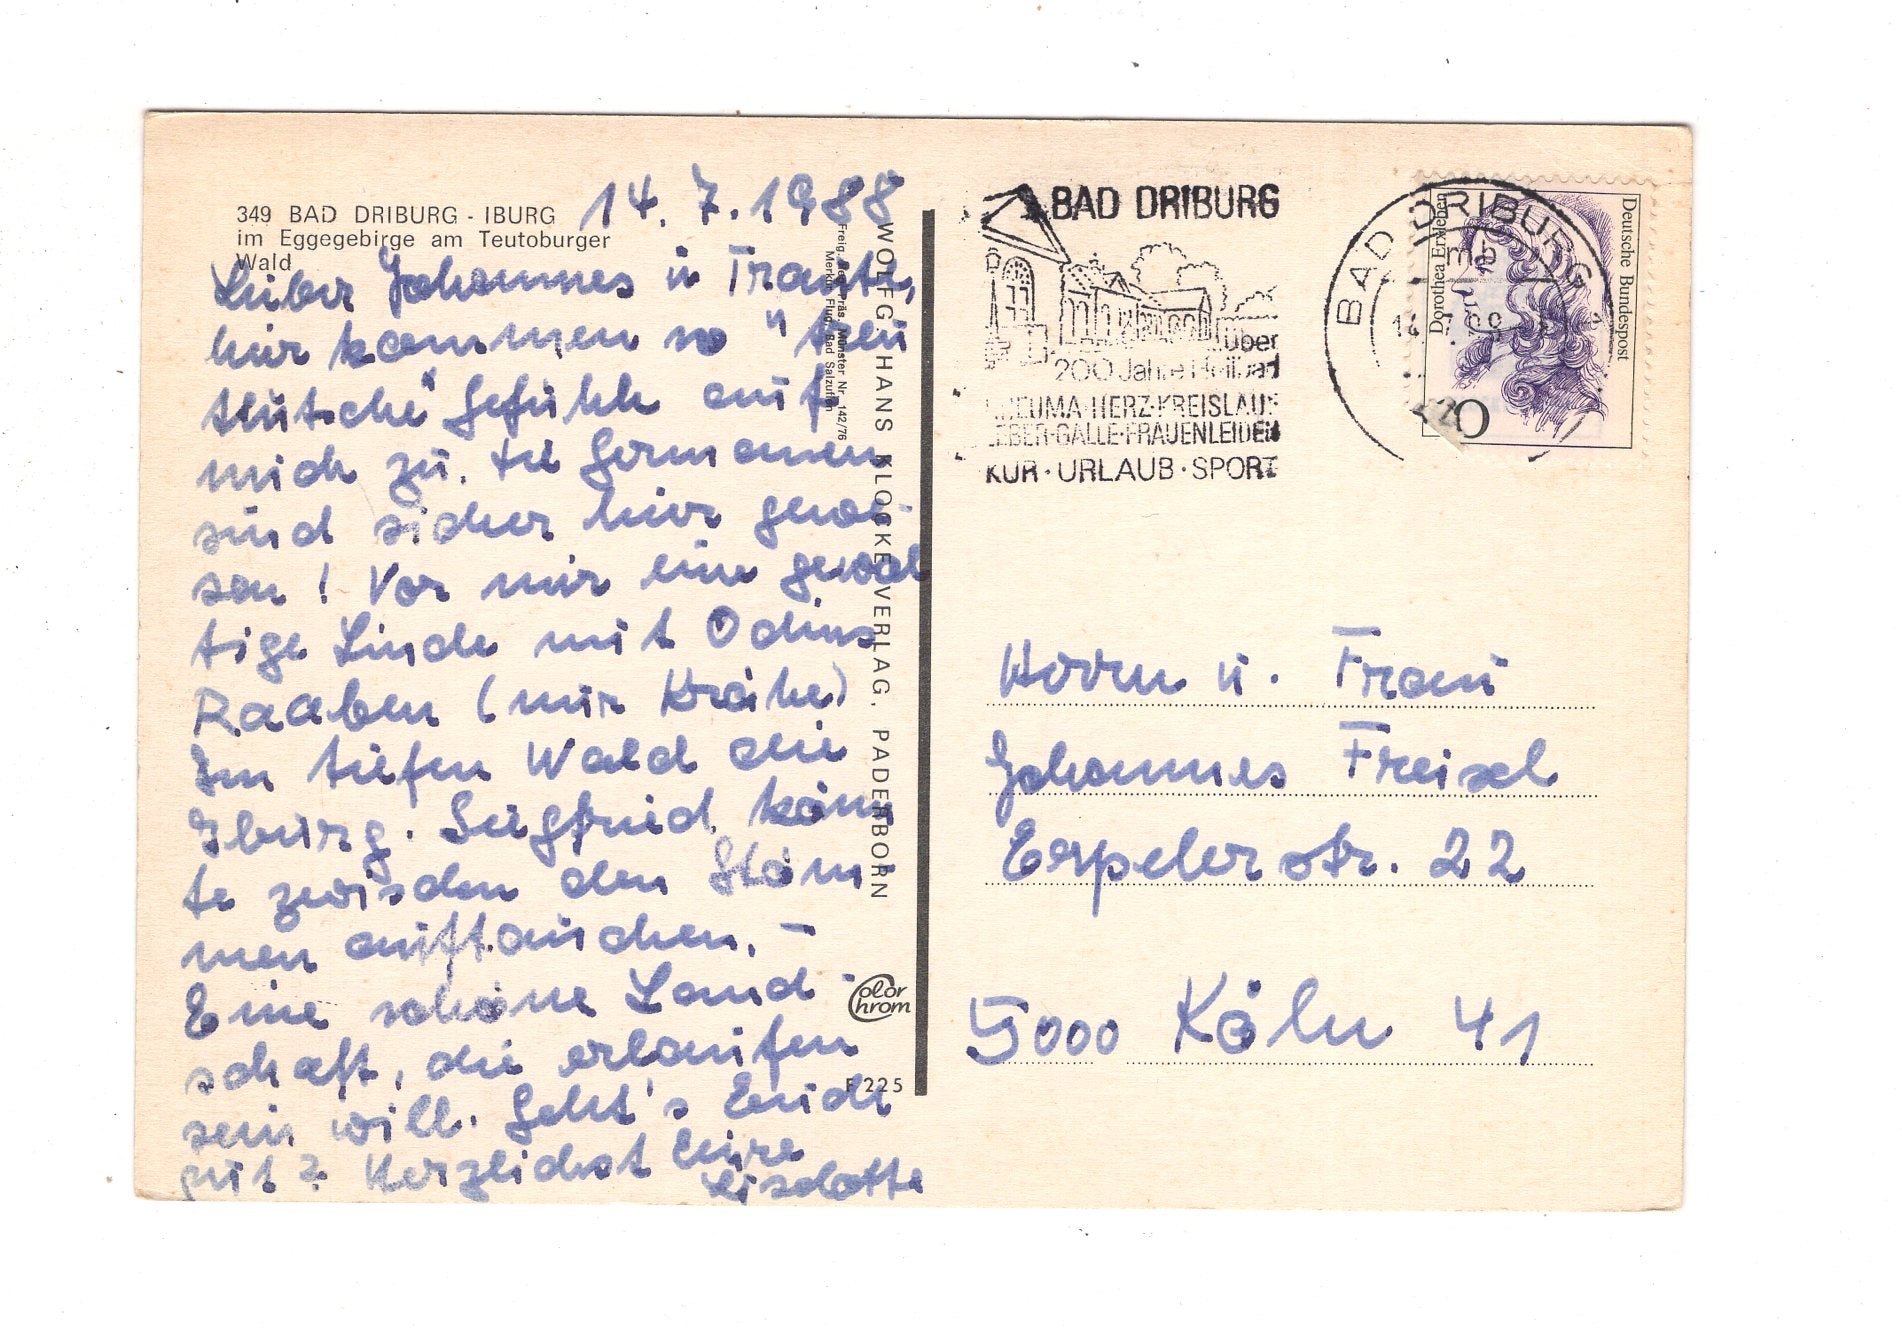 349 BAD DRIBURG - IBURG
im Eggegebirge am Teutoburger
Wald
14.7.1988
Lieber Johannes u Trautl,
hier kommen so "teu
tsche" Gefühle auf
mich zu, die Germanen
sind sicher hier gewe-
sen! Vor mir eine gewal
tige Linde mit Odins
Raaben (nur Krähe)
Im tiefen Wald die
Iburg. Siegfried könn
te zwischen den Stäm
men auftauchen. -
Eine schöne Land-
schaft, die erlaufen
sein will. Geht's Euch
gut? Herzlichst Eure
Liselotte
WOLFGANG HANS KLOCKE VERLAG, PADERBORN
Münster Nr. 142/76
Flug Bad Salzuflen
Color
Chrom
F 225
BAD DRIBURG
über
200 Jahre Heilbad
RHEUMA·HERZ·KREISLAUF
LEBER·GALLE·FRAUENLEIDEN
KUR·URLAUB·SPORT
BAD DRIBURG
mb
Dorothea Erxleben
Deutsche Bundespost
Herrn u. Frau
Johannes Freisel
Erpeler str. 22
5000 Köln 41